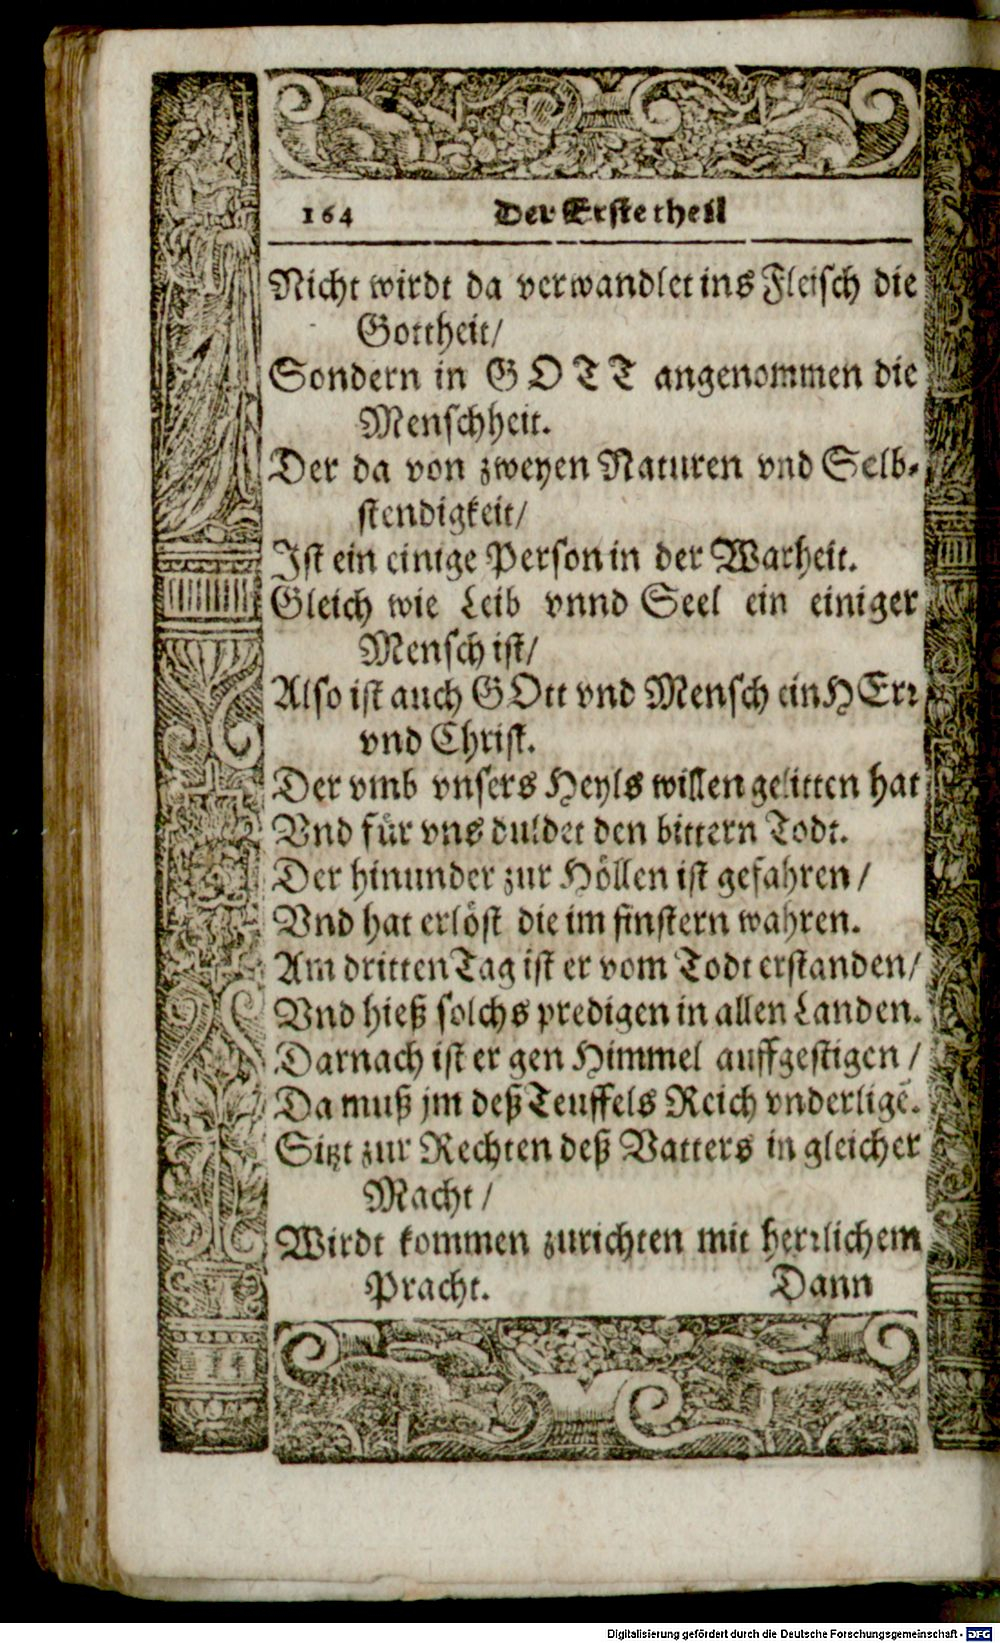 164 Der Erste theil
Nicht wirdt da verwandlet ins Fleisch die
Gottheit/
Sondern in GOTT angenommen die
Menschheit.
Der da von zweyen Naturen vnd Selb⸗
stendigkeit/
Ist ein einige Person in der Warheit.
Gleich wie Leib vnnd Seel ein einiger
Mensch ist/
Also ist auch GOtt vnd Mensch ein HErr
vnd Christ.
Der vmb vnsers Heyls willen gelitten hat
Vnd für vns duldet den bittern Todt.
Der hinunder zur Höllen ist gefahren /
Vnd hat erlöst die im finstern wahren.
Am dritten Tag ist er vom Todt erstanden/
Vnd hieß solchs predigen in allen Landen.
Darnach ist er gen Himmel auffgestigen /
Da muß jm deß Teuffels Reich vnderligē.
Sitzt zur Rechten deß Vatters in gleicher
Macht /
Wirdt kommen zurichten mit herrlichem
Pracht. Dann
Digitalisierung gefördert durch die Deutsche Forschungsgemeinschaft - DFG